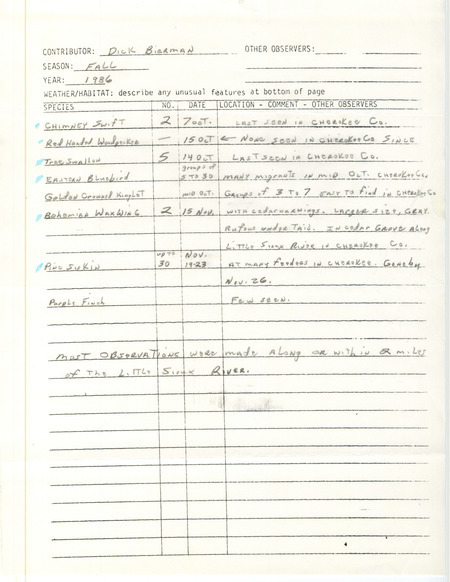 CONTRIBUTOR: Dick Bierman OTHER OBSERVERS:
SEASON: FALL
YEAR: 1986
WEATHER/HABITAT: describe any unusual features at bottom of page
SPECIES NO. DATE LOCATION - COMMENT - OTHER OBSERVERS
CHIMNEY SWIFT 2 7 OCT. LAST SEEN IN CHEROKEE CO.
Red Headed Woodpecker — 15 OCT ← NONE SEEN IN CHEROKEE CO SINCE
Tree Swallow 5 14 OCT LAST SEEN IN CHEROKEE CO.
EASTERN Bluebird groups of 5 TO 30 MANY MIGRANTS IN MID OCT. CHEROKEE Co.
Golden Crowned Kinglet MID OCT. Groups of 3 TO 7 EASY TO FIND IN CHEROKEE Co
Bohemian WAXWING 2 15 NOV. WITH CEDAR WAXWINGS. LARGER SIZE, GRAY
Rufous UNDER TAIL. IN CEDAR GROVE ALONG
LITTLE Sioux RIVER IN CHEROKEE CO.
Pine SISKIN UP TO 30 NOV. 19-23 AT MANY FEEDERS IN CHEROKEE. GONE BY
Nov. 26.
Purple Finch FEW SEEN.
MOST OBSERVATIONS WERE MADE ALONG OR WITHIN 2 MILES
of The LITTLE Sioux RIVER.